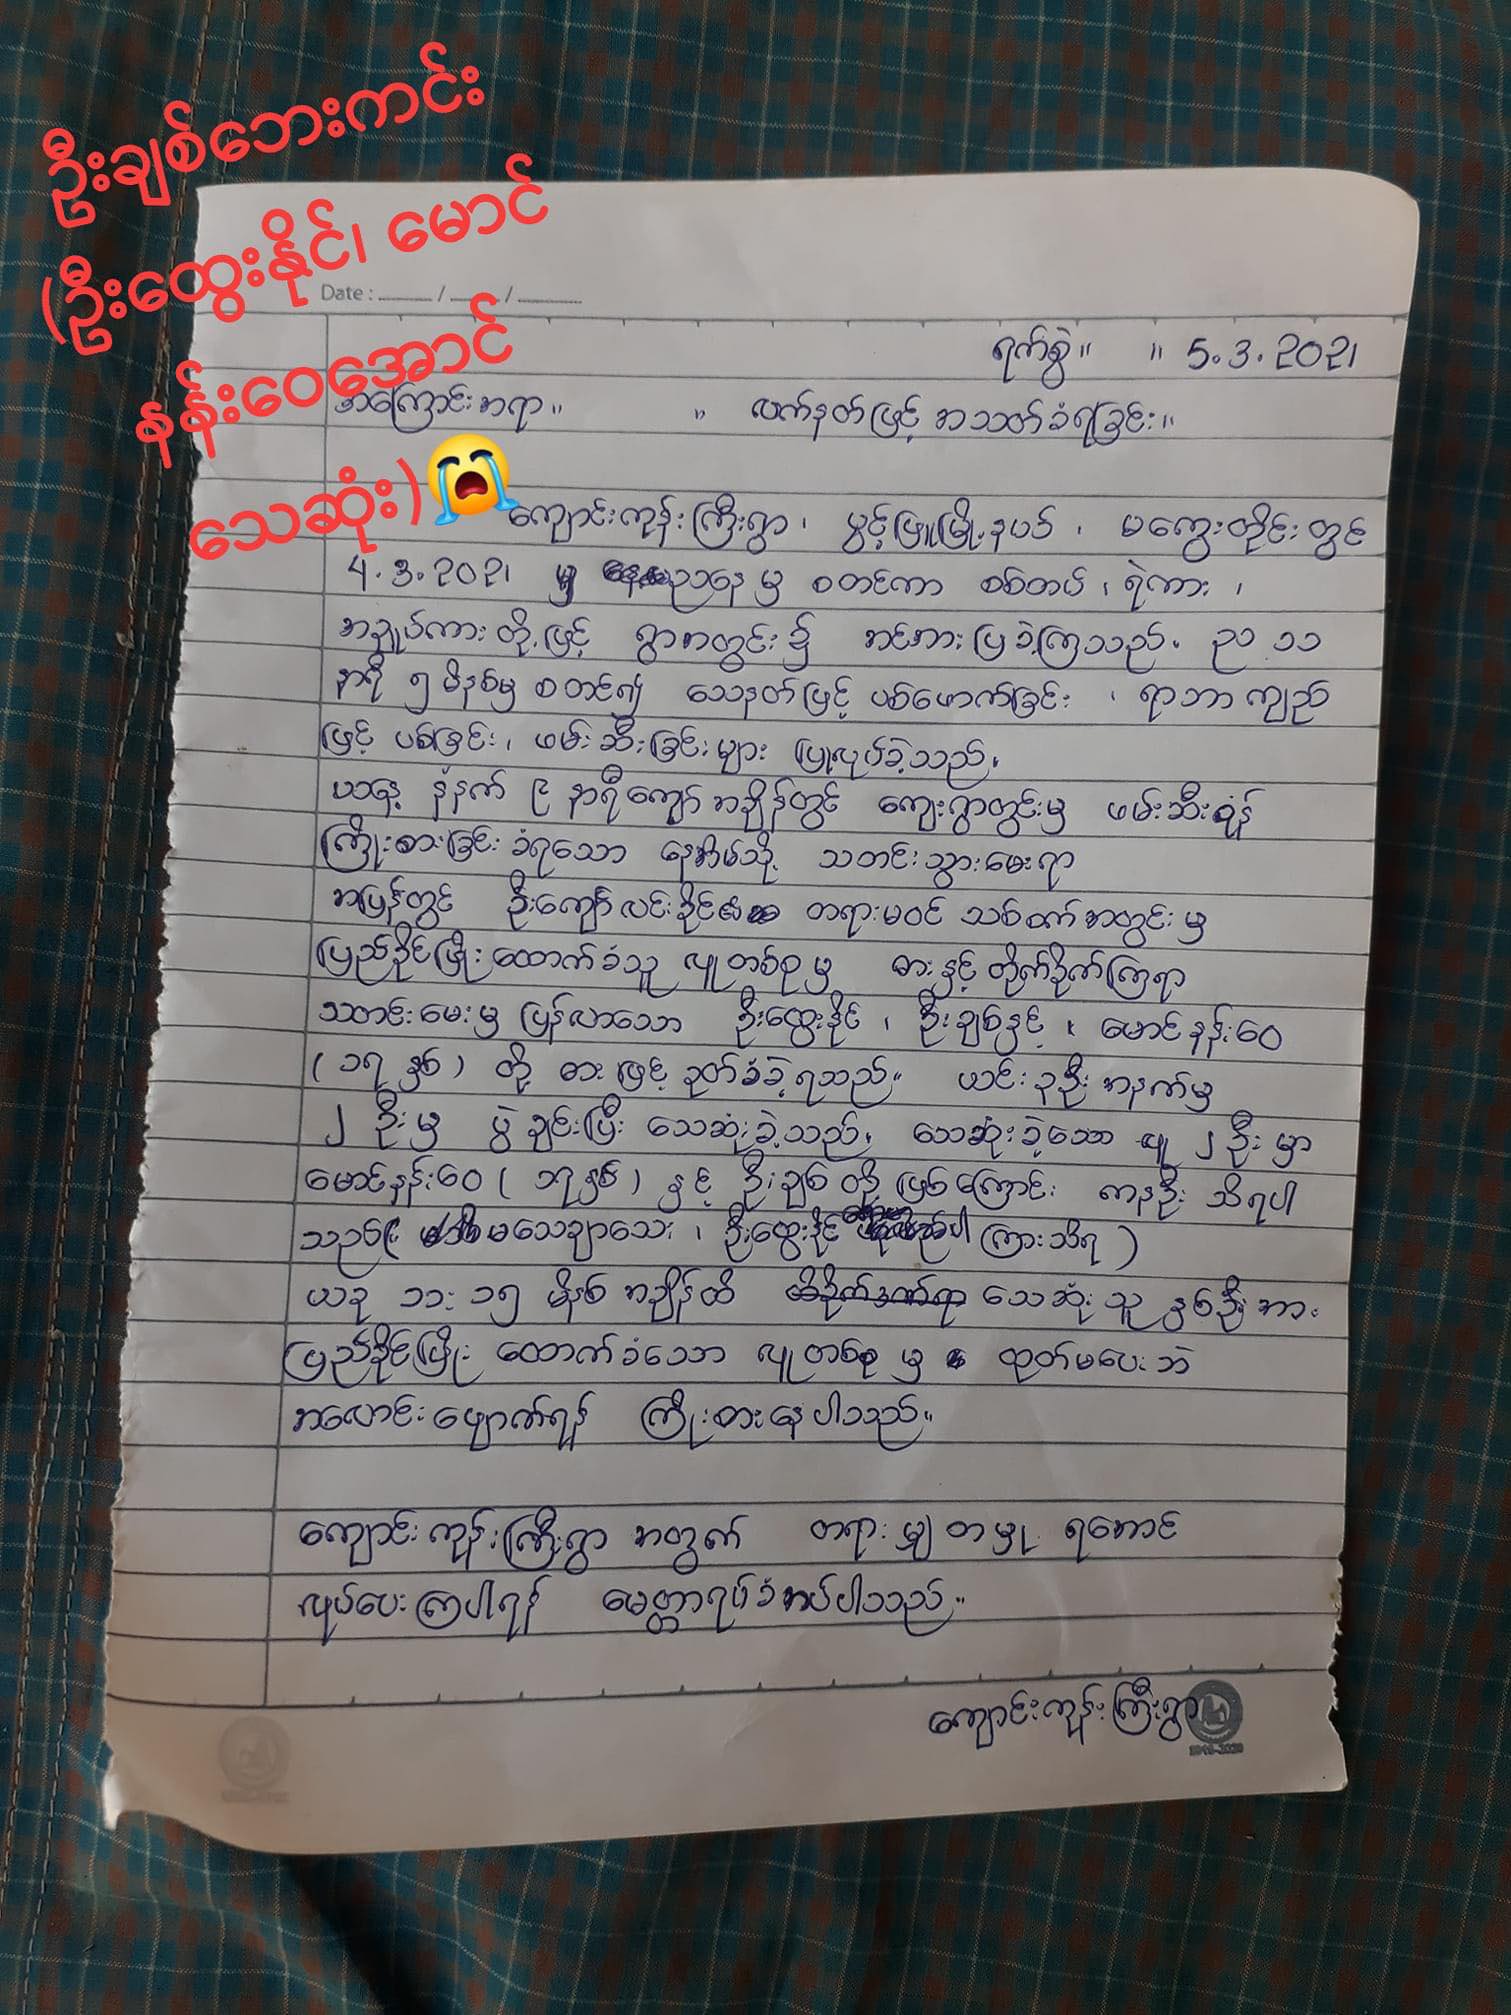 ဦးချစ်ဘေးကင်း
(ဦးထွေးနိုင်၊ မောင်
နန်းဝေအောင်
သေဆုံး)😭
Date : ____ / ____ / ____
ရက်စွဲ။ ။ 5.3.2021
အကြောင်းအရာ။ ။ လက်နက်ဖြင့် အသတ်ခံရခြင်း။
ကျောင်းကုန်းကြီးရွာ၊ ပွင့်ဖြူမြို့နယ် ၊ မကွေးတိုင်းတွင်
4.3.2021 မှ ညနေမှ စတင်ကာ စစ်တပ်၊ ရဲကား ၊
အချုပ်ကားတို့ဖြင့် ရွာအတွင်း၌ အင်အားပြခဲ့ကြသည်။ ည ၁၁
နာရီ ၅ မိနစ်မှ စတင်၍ သေနတ်ဖြင့် ပစ်ဖောက်ခြင်း ၊ ရာဘာကျည်
ဖြင့် ပစ်ခြင်း၊ ဖမ်းဆီးခြင်းများ ပြုလုပ်ခဲ့သည်။
ယနေ့ နံနက် ၉ နာရီကျော်အချိန်တွင် ကျေးရွာတွင်းမှ ဖမ်းဆီးရန်
ကြိုးစားခြင်းခံရသော နေအိမ်သို့ သတင်းသွားမေးရာ
အပြန်တွင် ဦးကျော်လင်းခိုင်၏ တရားမဝင် သစ်စက်အတွင်းမှ
ပြည်ခိုင်ဖြိုးထောက်ခံသူ လူတစ်စုမှ ဓားနှင့် တိုက်ခိုက်ကြရာ
သတင်းမေးမှ ပြန်လာသော ဦးထွေးနိုင် ၊ ဦးချစ်နှင့် ၊ မောင်နန်းဝေ
( ၁၇ နှစ် ) တို့ ဓားဖြင့် ခုတ်ခံခဲ့ရသည်။ ယင်း ၃ဦး အနက်မှ
၂ ဦးမှ ပွဲချင်းပြီး သေဆုံးခဲ့သည်။ သေဆုံးခဲ့သော လူ ၂ ဦး မှာ
မောင်နန်းဝေ ( ၁၇နှစ် ) နှင့် ဦးချစ် တို့ ဖြစ်ကြောင်း ကနဦး သိရပါ
သည်။( မသေချာသေး ၊ ဦးထွေးနိုင် ကြားသိရ )
ယခု ၁၁:၁၅ မိနစ် အချိန်ထိ သေဆုံးသူ နှစ်ဦးအား
ပြည်ခိုင်ဖြိုး ထောက်ခံသော လူတစ်စုမှ ထုတ်မပေးဘဲ
အလောင်းဖျောက်ရန် ကြိုးစားနေပါသည်။
ကျောင်းကုန်းကြီးရွာ အတွက် တရားမျှတမှု ရအောင်
လုပ်ပေးကြပါရန် မေတ္တာရပ်ခံအပ်ပါသည်။
ကျောင်းကုန်းကြီးရွာ